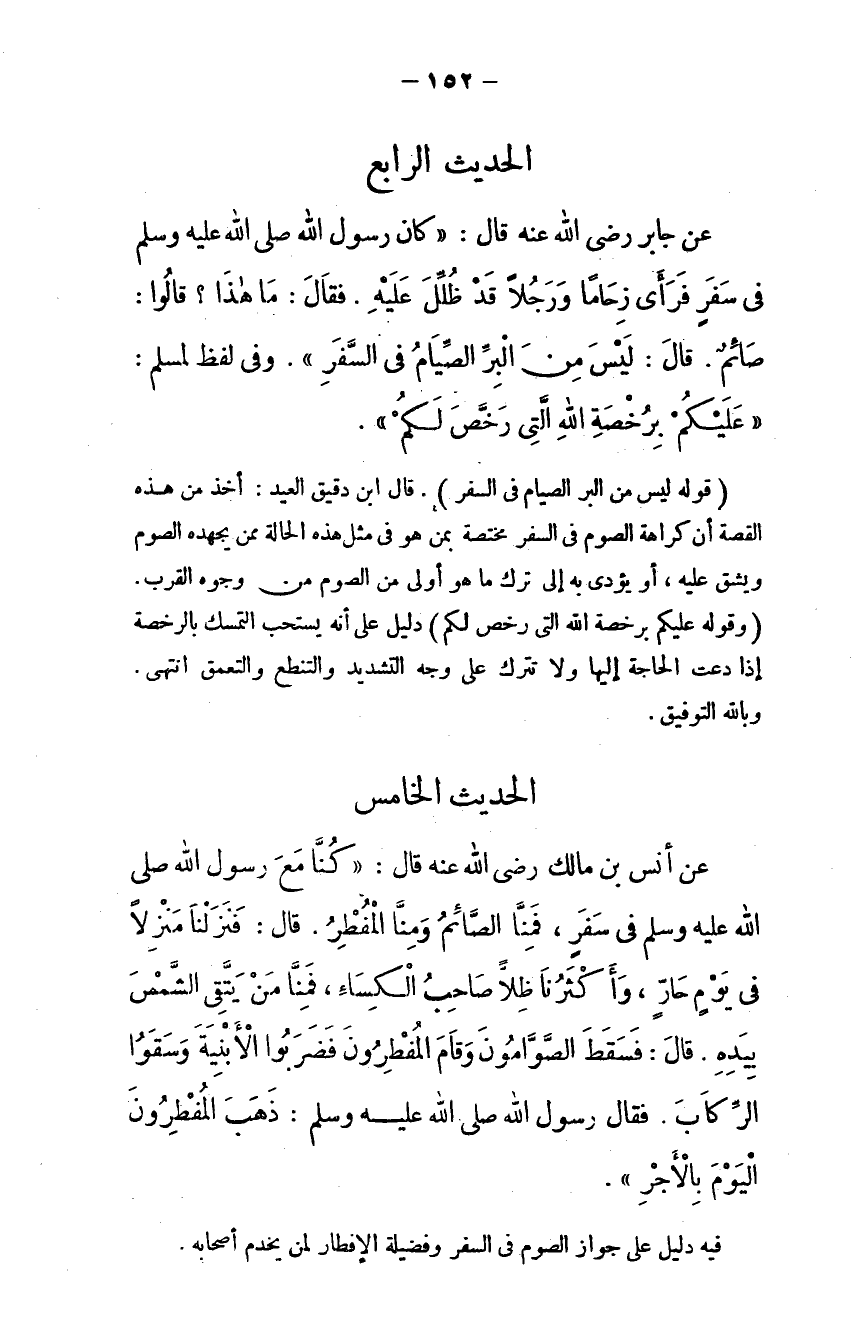 – ١٥٢ –
الحديث الرابع
عن جابر رضى الله عنه قال : « كان رسول الله صلى الله عليه وسلم
فى سَفَرٍ فَرَأَى زِحَامًا وَرَجُلاً قَدْ ظُلِّلَ عَلَيْهِ . فقَالَ : مَا هٰذَا ؟ قالُوا :
صَائمٌ . قالَ : لَيْسَ مِنَ الْبِرِّ الصِّيَامُ فى السَّفَرِ » . وفى لفظ لمسلم :
« عَلَيْكُمْ بِرُخْصَةِ اللهِ الَّتِى رَخَّصَ لَكُمْ » .
( قوله ليس من البر الصيام فى السفر ) . قال ابن دقيق العيد : أخذ من هذه
القصة أن كراهة الصوم فى السفر مختصة بمن هو فى مثل هذه الحالة ممن يجهده الصوم
ويشق عليه ، أو يؤدى به إلى ترك ما هو أولى من الصوم من وجوه القرب .
( وقوله عليكم برخصة الله التى رخص لكم ) دليل على أنه يستحب التمسك بالرخصة
إذا دعت الحاجة إليها ولا تترك على وجه التشديد والتنطع والتعمق انتهى .
وبالله التوفيق .
الحديث الخامس
عن أنس بن مالك رضى الله عنه قال : « كُنَّا مَعَ رسول الله صلى
الله عليه وسلم فى سَفَرٍ ، فَمِنَّا الصَّائمُ وَمِنَّا الْمُفْطِرُ . قال : فَنَزَلْنَا مَنْزِلاً
فى يَوْمٍ حَارٍّ ، وَأَكْثَرُنَا ظِلاًّ صَاحِبُ الْكِسَاءِ ، فَمِنَّا مَنْ يَتَّقِى الشَّمْسَ
بِيَدِهِ . قالَ : فَسَقَطَ الصَّوَّامُونَ وَقَامَ المُفْطِرُونَ فَضَرَبُوا الْأَبْنِيَةَ وَسَقَوُا
الرِّكَابَ . فقال رسول الله صلى الله عليه وسلم : ذَهَبَ المُفْطِرُونَ
الْيَوْمَ بِالْأَجْرِ » .
فيه دليل على جواز الصوم فى السفر وفضيلة الإفطار لمن يخدم أصحابه .